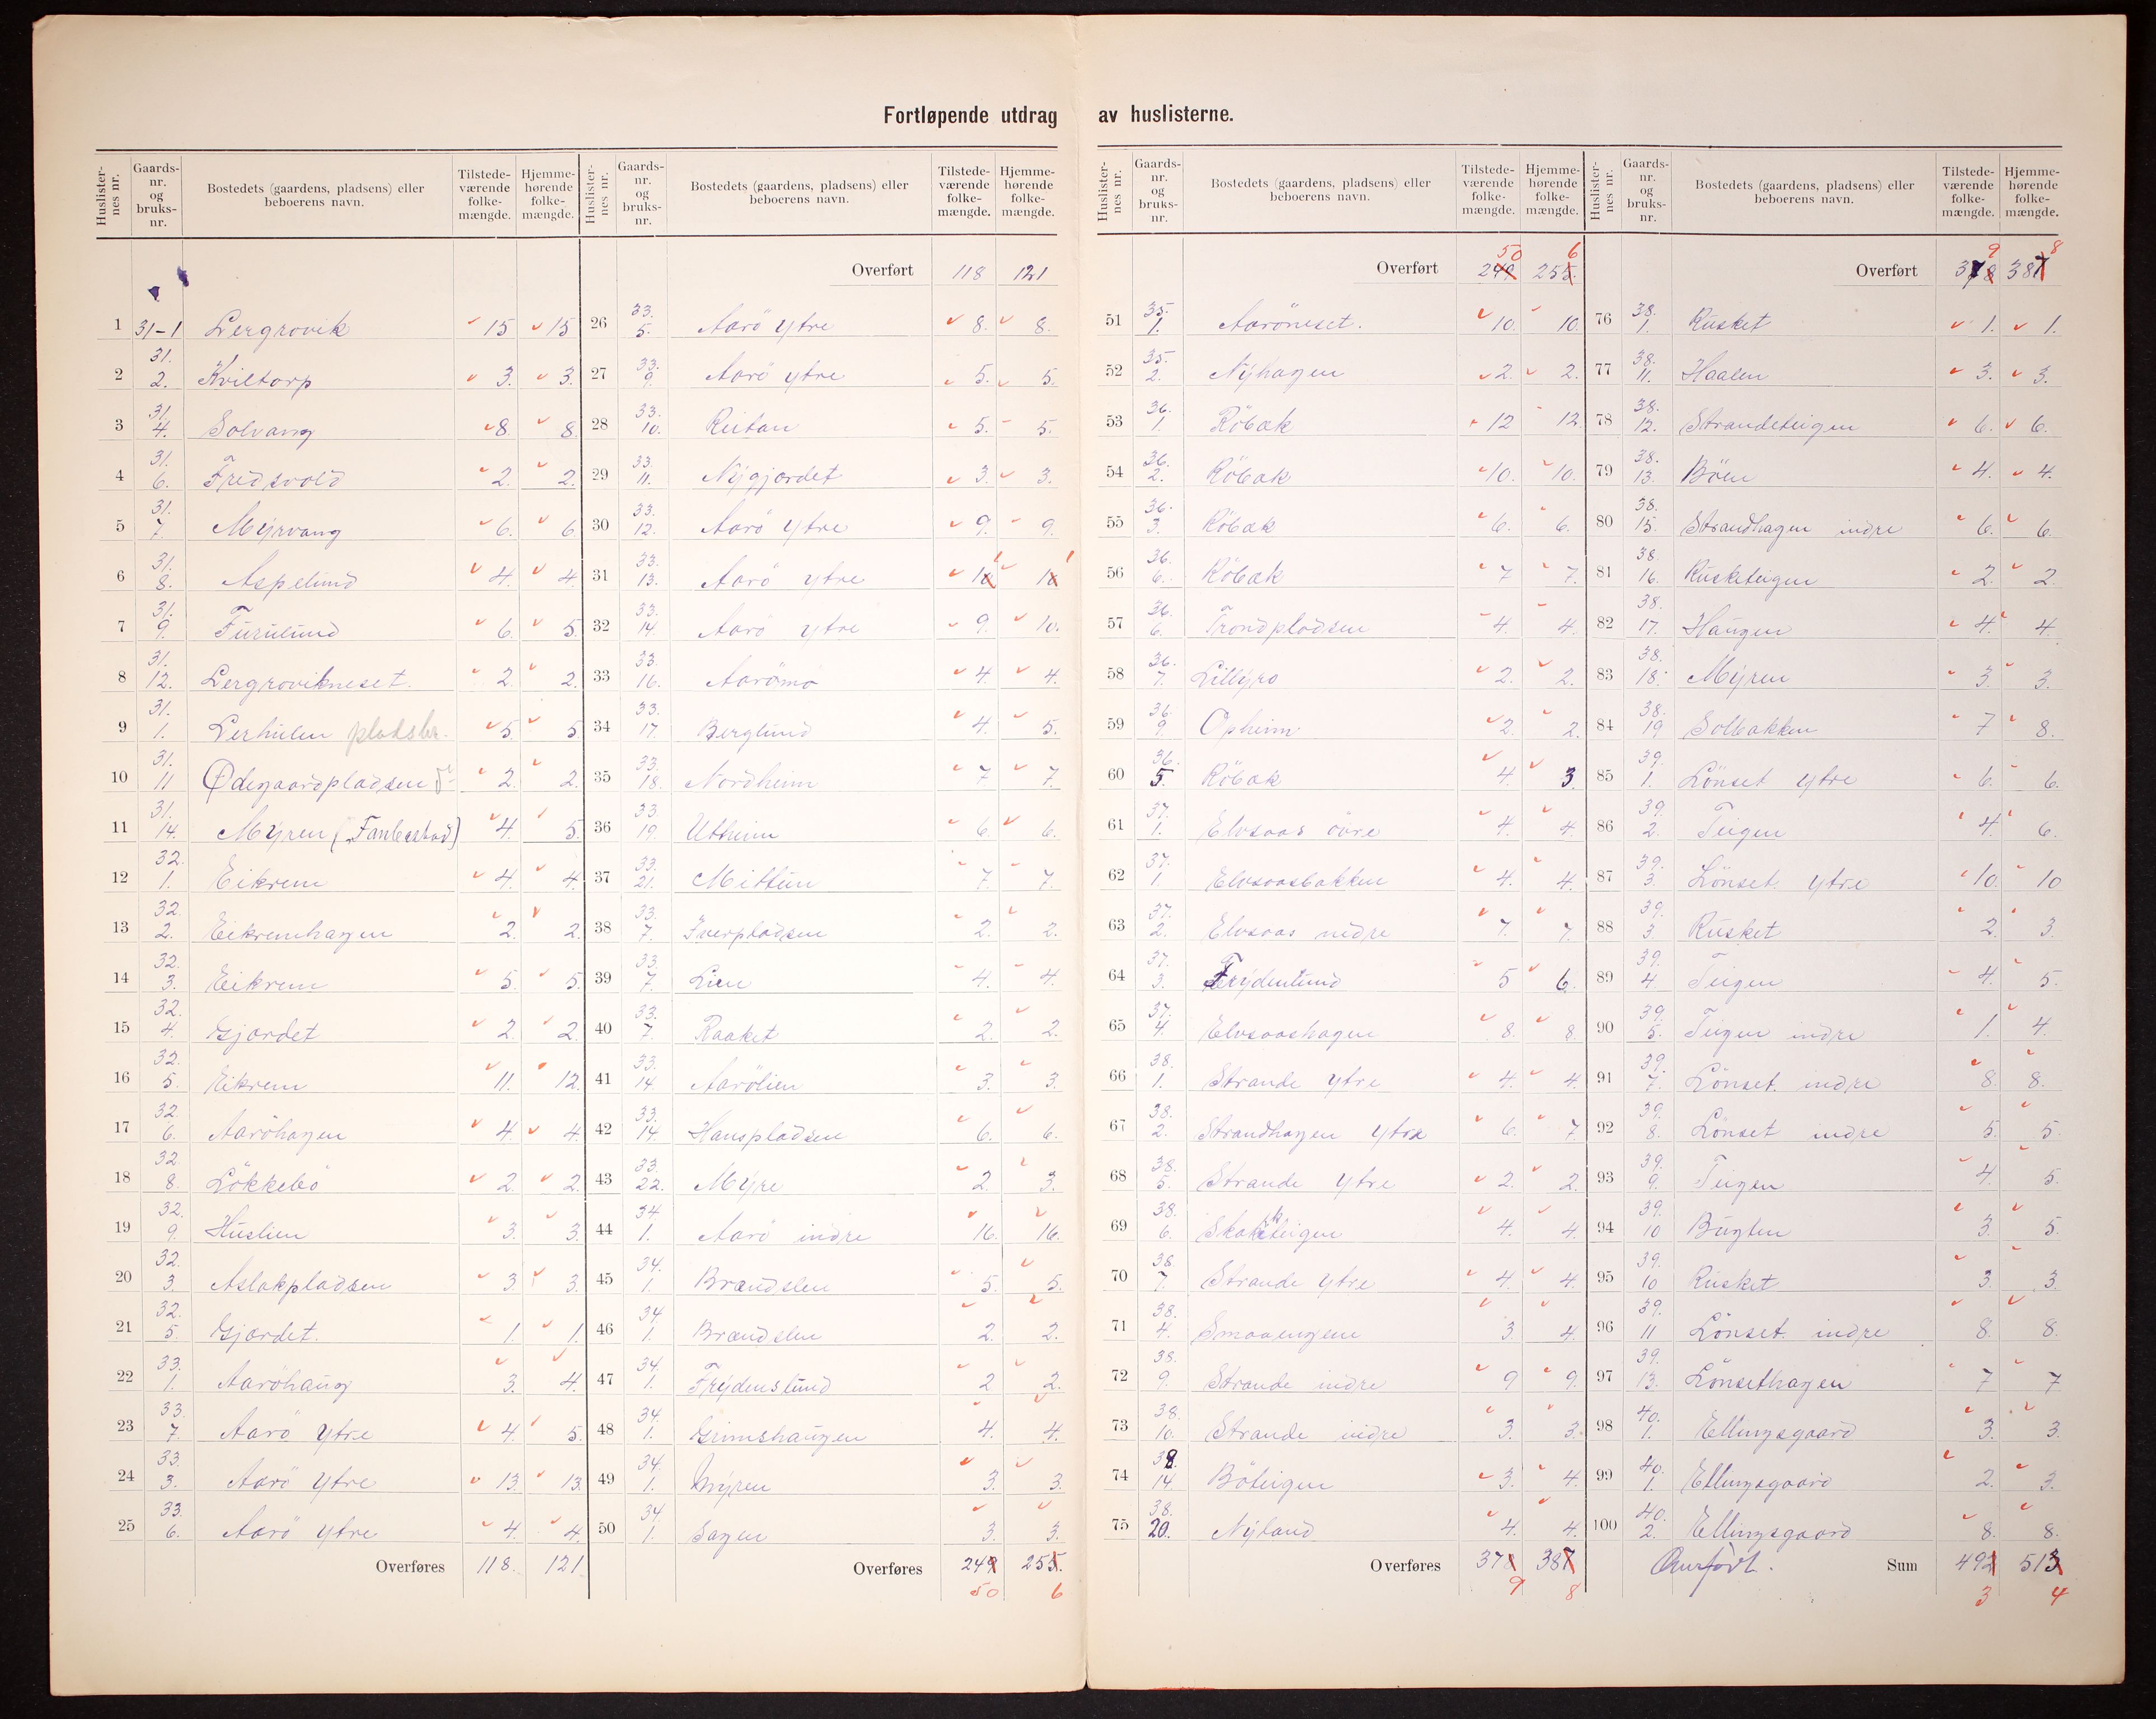 Fortløpende utdrag av huslisterne.
Huslisternes nr. Gaards-nr. og bruks-nr. Bostedets (gaardens, pladsens) eller beboerens navn. Tilstedeværende folkemængde. Hjemmehørende folkemængde.
1 31-1 Lergrovik 15 15
2 31. 2. Kviltorp 3. 3.
3 31. 4. Solvang 8. 8.
4 31. 6. Fredsvold 2. 2.
5 31. 7. Myrvang 6. 6
6 31. 8. Aspelund 4. 4
7 31. 9. Furulund 6. 5.
8 31. 12. Lergrovikneset. 2. 2.
9 31. 1. Lerhulen pladsbr. 5. 5
10 31. 11 Ødegaardpladsen 2. 2.
11 31. 14. Myren (Fanbestad) 4. 5.
12 32. 1. Eikrem 4. 4.
13 32. 2. Eikremhagen 2. 2.
14 32. 3. Eikrem 5. 5.
15 32. 4. Gjordet 2. 2.
16 32. 5. Eikrem 11. 12.
17 32. 6. Aaröhagen 4. 4.
18 32. 8. Lökkebö 2. 2.
19 32. 9. Huslien 3. 3.
20 32. 3. Aslakpladsen 3. 3.
21 32. 5. Gjordet. 1. 1.
22 33. 1. Aaröhaug 3. 4.
23 33. 7. Aarö Ytre 4. 5.
24 33. 3. Aarö Ytre 13. 13.
25 33. 6. Aarö Ytre 4. 4.
Overføres 118. 121.
Huslisternes nr. Gaards-nr. og bruks-nr. Bostedets (gaardens, pladsens) eller beboerens navn. Tilstedeværende folkemængde. Hjemmehørende folkemængde.
Overført 118 121
26 33. 5. Aarö Ytre 8. 8.
27 33. 9. Aarö Ytre 5. 5.
28 33. 10. Rutan 5. 5.
29 33. 11. Nygjordet 3. 3.
30 33. 12. Aarö Ytre 9. 9.
31 33. 13. Aarö Ytre 11 11
32 33. 14. Aarö Ytre 9. 10.
33 33. 16. Aarömo 4. 4.
34 33. 17. Berglund 4. 5.
35 33. 18. Nordheim 7. 7.
36 33. 19. Utheim 6. 6.
37 33. 21. Mittun 7. 7.
38 33. 7. Iverpladsen 2. 2.
39 33. 7. Lien 4. 4.
40 33. 7. Raaket 2. 2.
41 33. 14 Aarölien 3. 3.
42 33. 14. Hanspladsen 6. 6.
43 33. 22. Myre 2. 3.
44 34. 1. Aarö indre 16. 16.
45 34. 1. Brandslen 5. 5.
46 34. 1. Brandslen 2. 2.
47 34. 1. Frydenslund 2 2.
48 34. 1. Grimshaugen 4. 4.
49 34. 1. Myren 3. 3.
50 34. 1. Sagen 3. 3.
Overføres 249 255.
50 6
Huslisternes nr. Gaards-nr. og bruks-nr. Bostedets (gaardens, pladsens) eller beboerens navn. Tilstedeværende folkemængde. Hjemmehørende folkemængde.
50 6
Overført 249 255
51 35. 1. Aaröneset. 10. 10.
52 35. 2. Nyhagen 2. 2.
53 36. 1. Röbak 12 12.
54 36. 2. Röbak 10. 10.
55 36. 3. Röbak 6. 6.
56 36. 6. Röbak 7 7.
57 36. 6. Trondpladsen 4. 4.
58 36. 7. Lillyro 2. 2.
59 36. 9. Opheim 2. 2.
60 36. 5. Röbak 4. 3.
61 37. 1. Elvsaas övre 4. 4.
62 37. 1 Elvsaasbakken 4. 4.
63 37. 2. Elvsaas nedre 7. 7.
64 37. 3. Frydenlund 5 6.
65 37. 4 Elvsaashagen 8. 8.
66 38. 1. Strande Ytre 4. 4.
67 38. 2. Strandhagen Ytre 6. 7.
68 38. 5. Strande Ytre 2. 2.
69 38. 6. 4. 4.
70 38. 7. Strande Ytre 4. 4.
71 38. 4. Smaaengene 3. 4.
72 38. 9. Strande indre 9 9.
73 38. 10. Strande indre 3. 3.
74 38. 14. Böteigen 3. 4.
75 38. 20. Nyland 4. 4.
Overføres 378 387
9 8
Huslisternes nr. Gaards-nr. og bruks-nr. Bostedets (gaardens, pladsens) eller beboerens navn. Tilstedeværende folkemængde. Hjemmehørende folkemængde.
9 8
Overført 378 387
76 38. 1. Rusket 1. 1.
77 38. 11. Haalen 3. 3.
78 38. 12. Strandeteigen 6. 6.
79 38. 13. Böen 4. 4.
80 38. 15. Strandhagen indre 6. 6.
81 38. 16. Rusketeigen 2. 2
82 38. 17. Haugen 4. 4.
83 38. 18. Myren 3. 3.
84 38. 19 Solbakken 7 8.
85 39. 1. Lönset Ytre 6. 6.
86 39. 2. Teigen 4. 6.
87 39. 3. Lönset Ytre 10. 10
88 39. 3 Rusket 2. 3.
89 39. 4. Teigen 4. 5.
90 39. 5. Teigen indre 1. 4.
91 39. 7. Lönset indre 8. 8.
92 39. 8. Lönset indre 5. 5.
93 39. 9. Teigen 4. 5.
94 39. 10 Bugten 3. 5.
95 39. 10 Rusket 3. 3.
96 39. 11 Lönset indre 8. 8.
97 39. 13. Lönsethagen 7 7
98 40. 1. Ellingsgaard 3. 3.
99 40. 1. Ellingsgaard 2. 3.
100 40. 2. Ellingsgaard 8. 8.
Overført. Sum 492 513
3 4